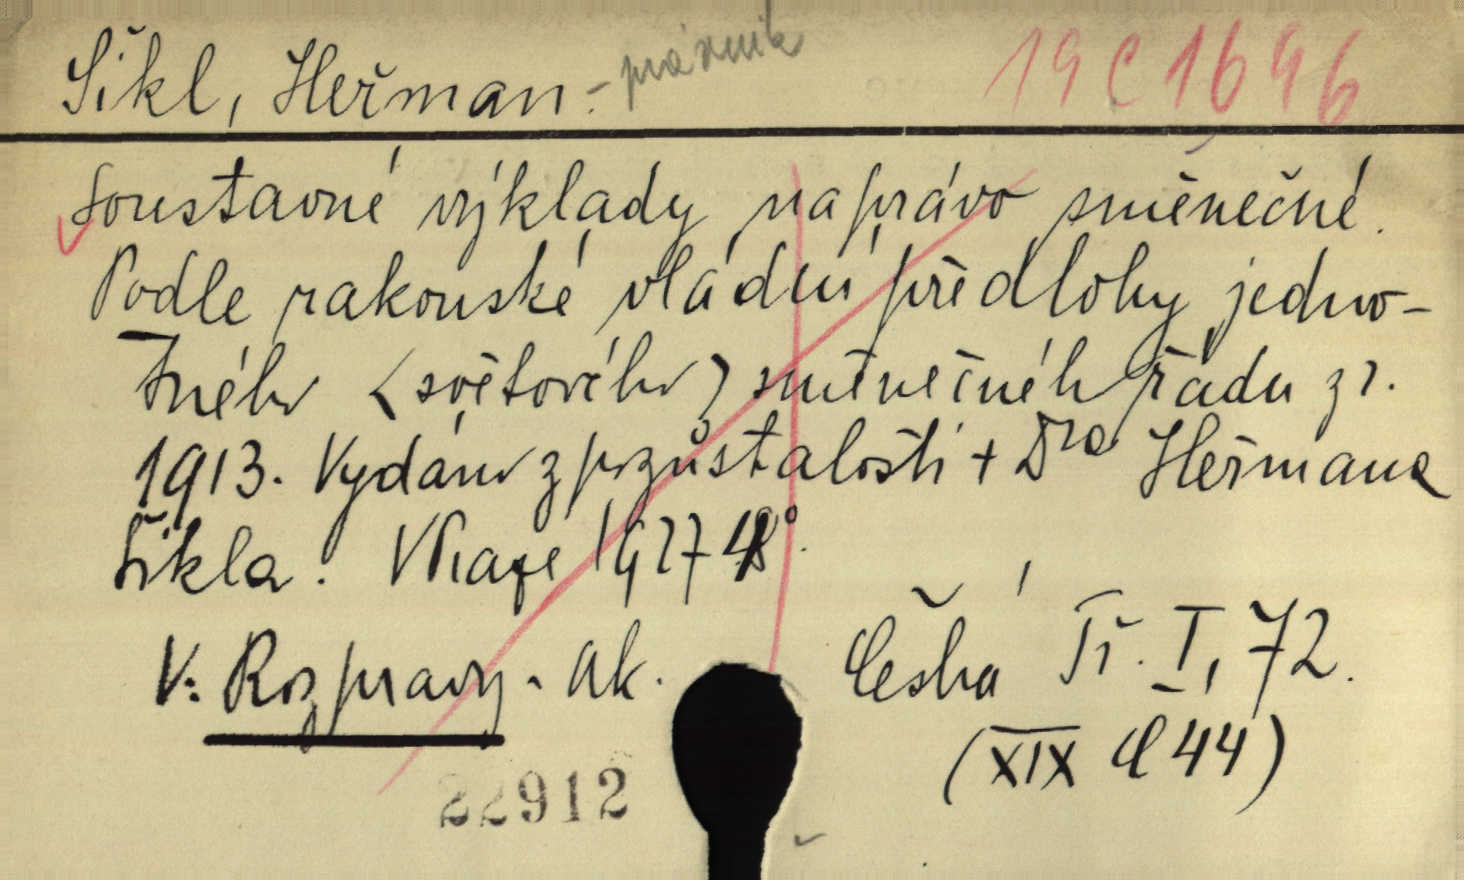 Šikl, Heřman. - právník 19 C 1696
Soustavné výklady na právo směnečné.
Podle rakouské vládní předlohy jedno-
tného (světového) směnečného řádu z r.
1913. Vydáno z pozůstalosti + Dra Heřmana
Šikla. V Praze 1927 8°.
V: Rozpravy. Ak. Česká Tř. I, 72.
(XIX C 44)
22912